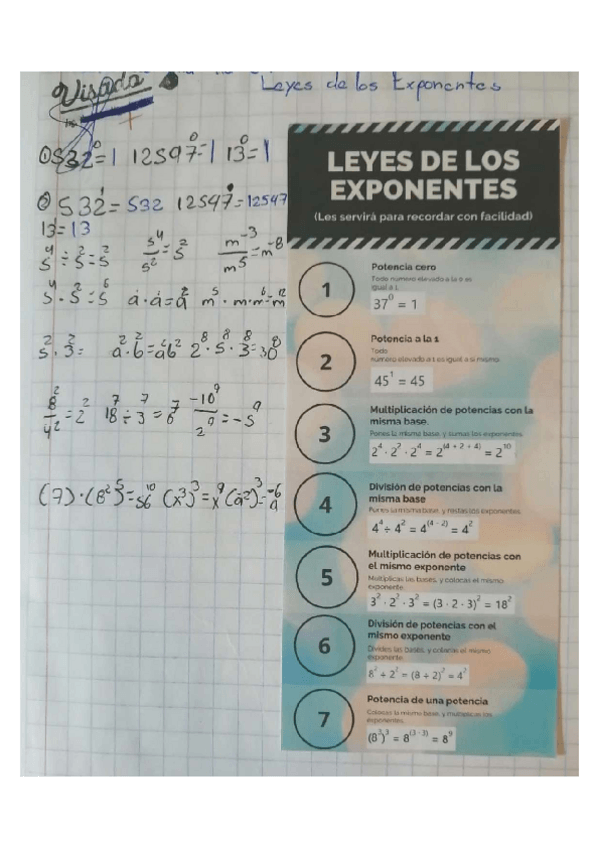 Visado
Leyes de los Exponentes
① 532⁰=1 12597⁰=1 13⁰=1
② 532¹=532 12547¹=12547
13¹=13
5⁴÷5²=5² 5⁴/5²=5² m⁻³/m⁵=m⁻⁸
5⁴·5²=5⁶ a·a=a² m⁵·m·m⁶=m¹²
5²·3²= a²·b²=ab² 2⁸·5⁸·3⁸=30⁸
8²/4²=2² 18⁷÷3⁷=6⁷ -10⁹/2⁹=-5⁹
(7)·(8²)⁵=56¹⁰ (x³)³=x⁹ (a⁻²)³=a⁻⁶
LEYES DE LOS
EXPONENTES
(Les servirá para recordar con facilidad)
1
Potencia cero
Todo número elevado a la 0 es
igual a 1.
37⁰ = 1
2
Potencia a la 1
Todo
número elevado a 1 es igual a sí mismo
45¹ = 45
3
Multiplicación de potencias con la
misma base.
Pones la misma base, y sumas los exponentes.
2⁴·2²·2⁴ = 2⁽⁴⁺²⁺⁴⁾ = 2¹⁰
4
División de potencias con la
misma base
Pones la misma base, y restas los exponentes.
4⁴÷ 4² = 4⁽⁴⁻²⁾ = 4²
5
Multiplicación de potencias con
el mismo exponente
Multiplicas las bases, y colocas el mismo
exponente.
3²·2²·3² = (3·2·3)² = 18²
6
División de potencias con el
mismo exponente
Divides las bases, y colocas el mismo
exponente.
8² ÷ 2² = (8 ÷ 2)² = 4²
7
Potencia de una potencia
Colocas la misma base, y multiplicas los
exponentes.
(8³)³ = 8⁽³·³⁾ = 8⁹